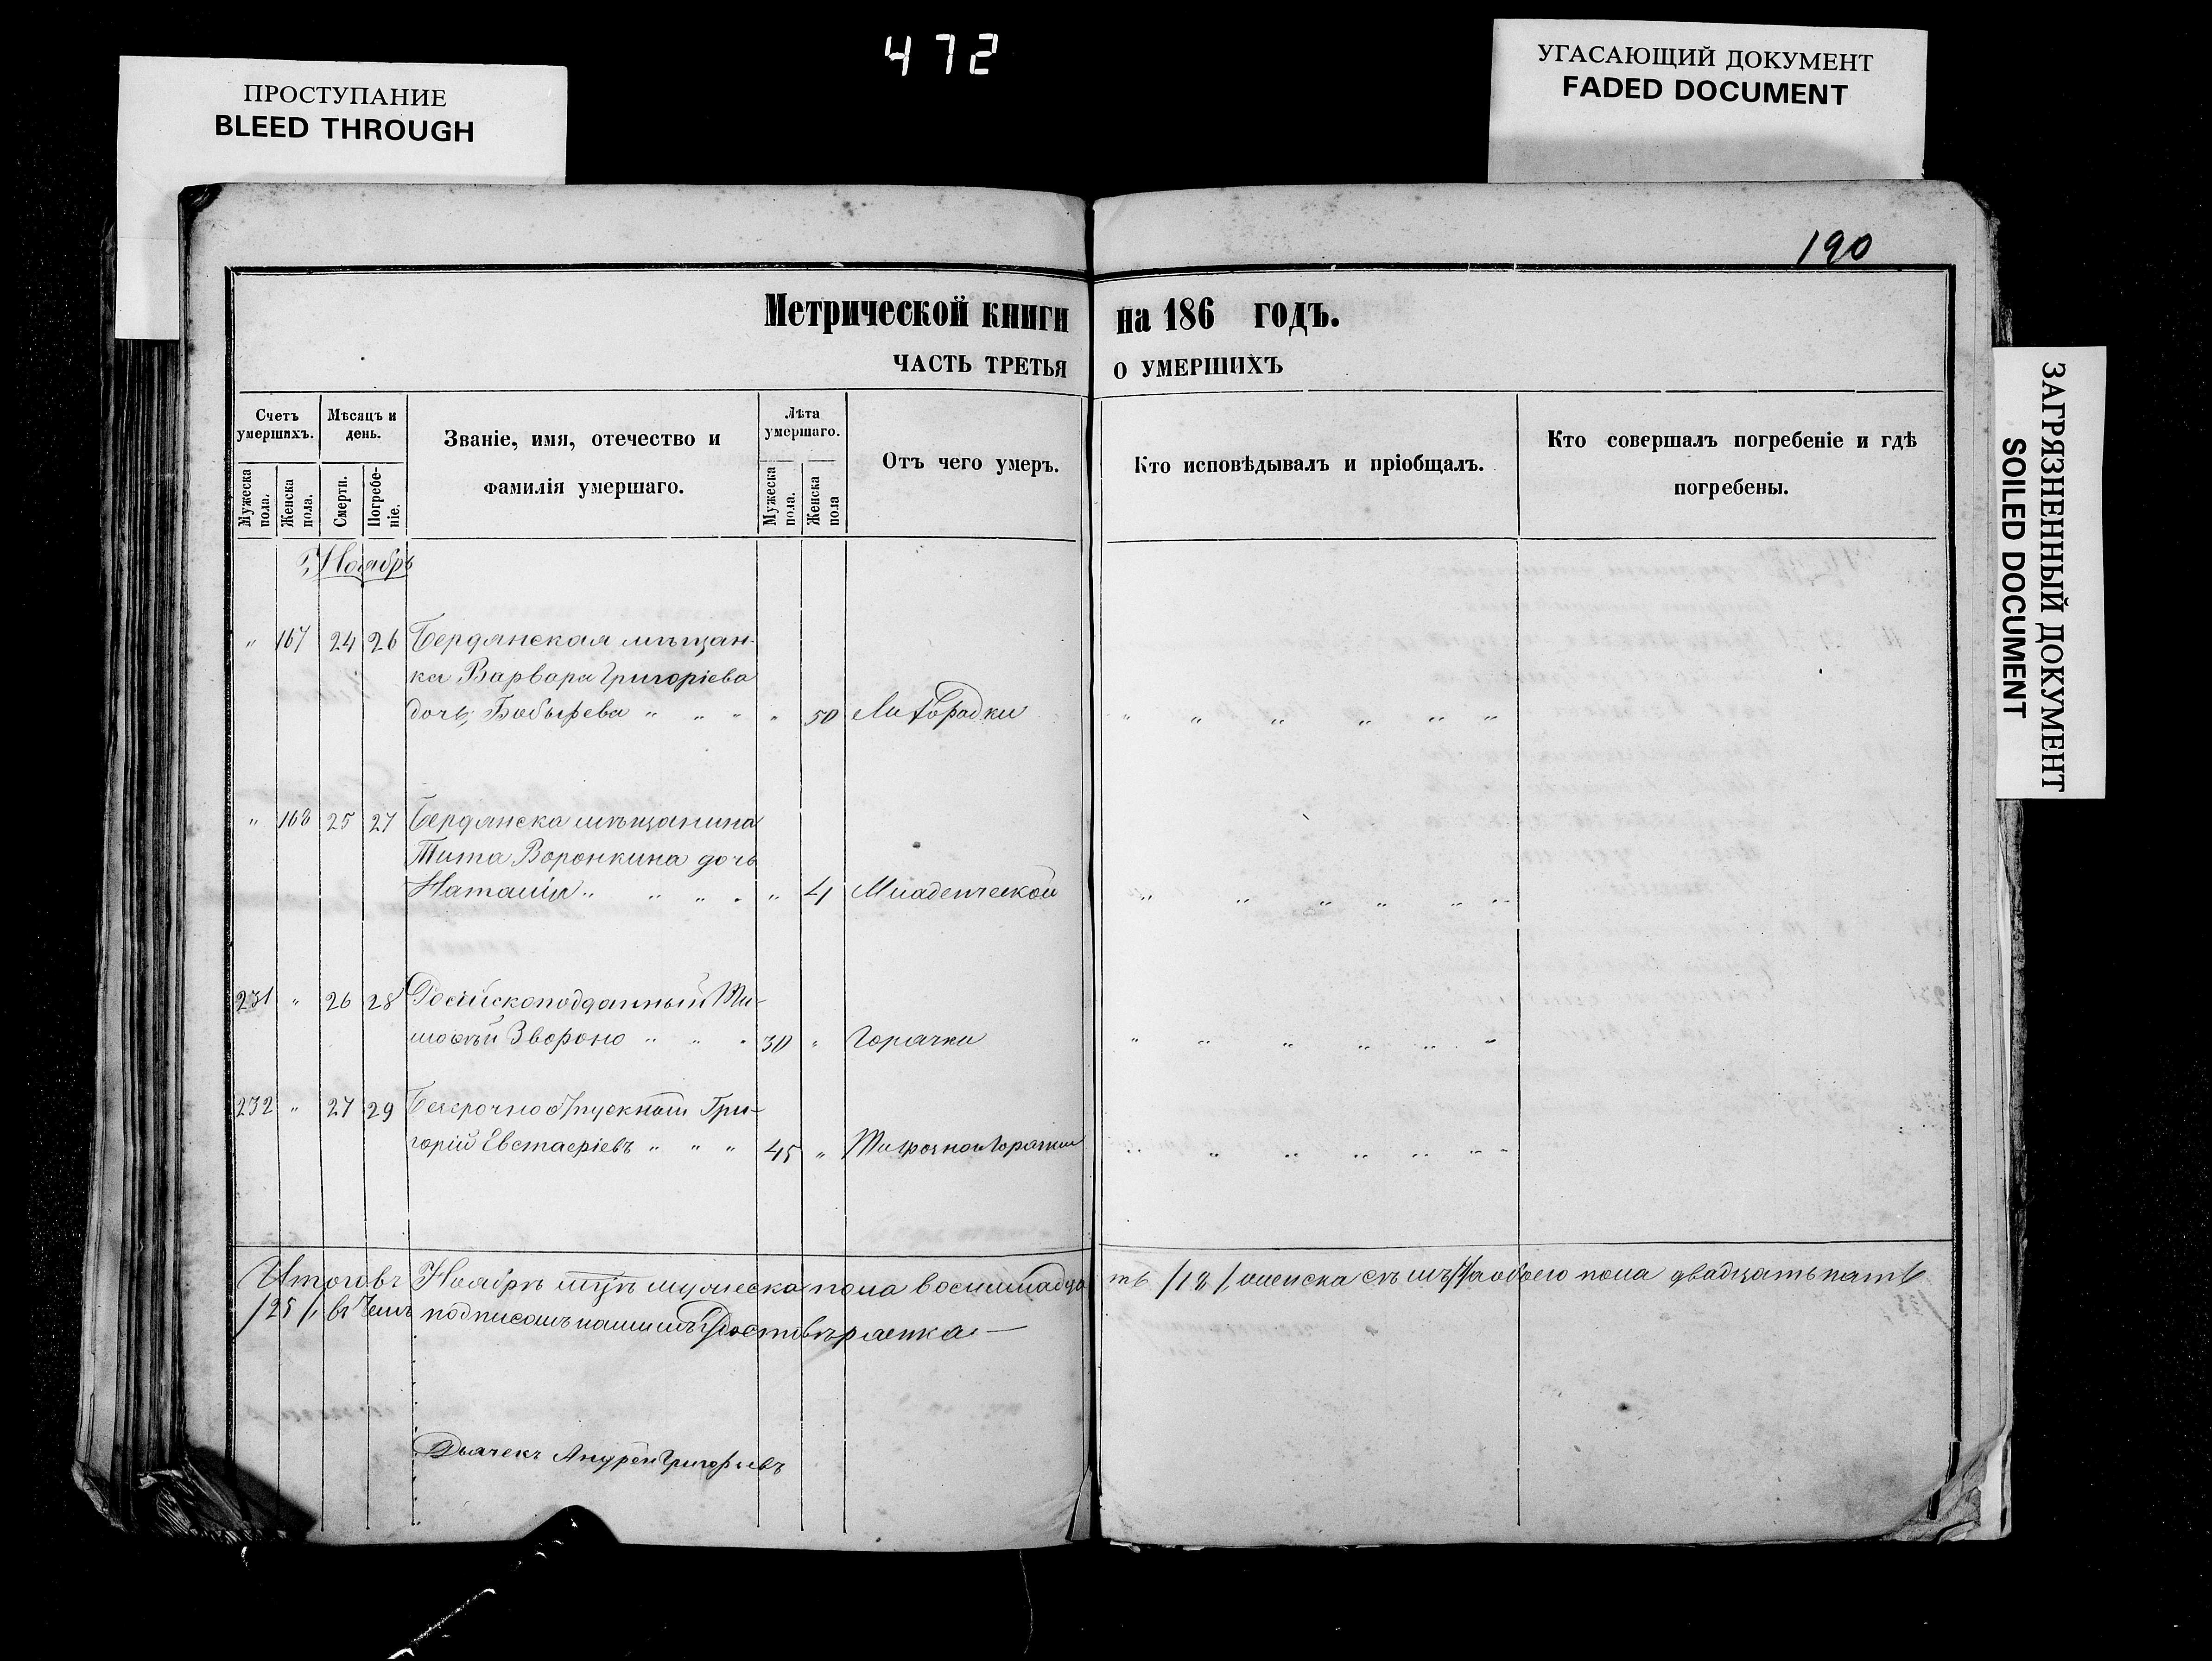 472
ПРОСТУПАНИЕ
BLEED THROUGH
УГАСАЮЩИЙ ДОКУМЕНТ
FADED DOCUMENT
ЗАГРЯЗНЕННЫЙ ДОКУМЕНТ
SOILED DOCUMENT
190
Метрической книги на 186 годъ.
ЧАСТЬ ТРЕТЬЯ О УМЕРШИХЪ
Счетъ умершихъ.
Мужеска пола.
Женска пола.
Мѣсяцъ и день.
Смерти.
Погребеніе.
Званіе, имя, отечество и
фамилія умершаго.
Лѣта умершаго.
Мужеска пола.
Женска пола
Отъ чего умеръ.
Кто исповѣдывалъ и пріобщалъ.
Кто совершалъ погребеніе и гдѣ
погребены.
Ноябрь
" 167 24 26 Бердянская мѣщан-
ка Варвара Григоріева
дочь, Бобырева " " " " 50 Лихорадки " " " " " "
" 168 25 27 Бердянска мѣщанина
Тита Воронкина дочь
Наталія " " " " " 4 Младенческой " " " " " "
231 " 26 28 Російскоподданный Ти-
моѳей Звороно " " " 30 " Горячки " " " " " "
232 " 27 29 Безсрочноотпускной Гри-
горій Евстаѳіевъ " " " 45 " Горячки " " " " " "
Итого въ Ноябрѣ мцѣ мужеска пола восимнадца ть /18/, женска обоего пола двадцать пять
/25/, въ чемъ подписомъ нашимъ
Дьячекъ Андрей Григорьевъ